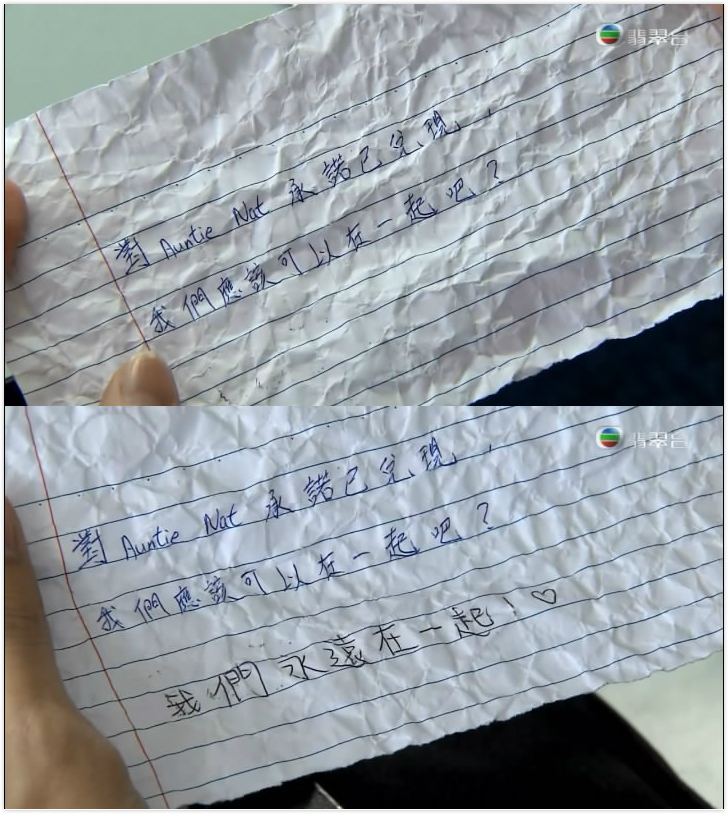 翡翠台
對 Auntie Nat 承諾已兌現，
我們應該可以在一起吧？
翡翠台
對 Auntie Nat 承諾已兌現，
我們應該可以在一起吧？
我們永遠在一起！♡